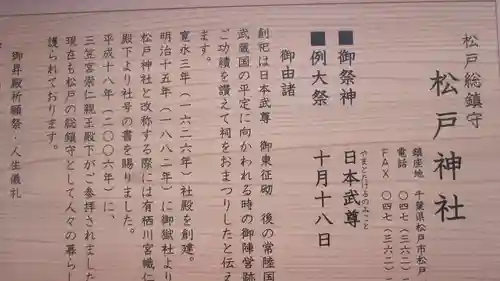 松戸総鎮守
松戸神社
鎮座地 千葉県松戸市松戸
電話 〇四七(三六二)
FAX 〇四七(三六二)
■御祭神 日本武尊
やまとたけるのみこと
■例大祭 十月十八日
御由諸
創祀は日本武尊 御東征砌 後の常陸国
武蔵国の平定に向かわれる時の御陣営跡
ご功績を讃えて祠をおまつりしたと伝え
ます。
寛永三年(一六二六年)社殿を創建。
明治十五年(一八八二年)に御嶽社より
松戸神社と改称する際には有栖川宮幟仁
殿下より社号の書を賜りました。
平成十八年(二〇〇六年)に、
三笠宮崇仁親王殿下がご参拝されました
現在も松戸の総鎮守として人々の暮らし
護られております。
御昇殿祈願祭・人生儀礼